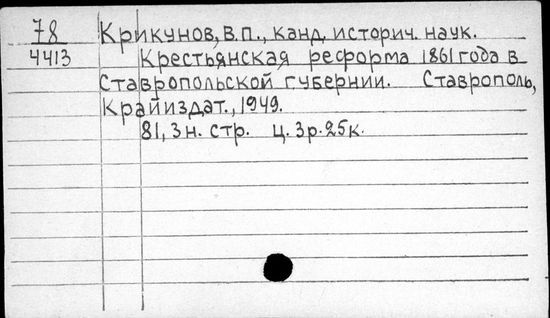 78 Крикунов, В.П., канд. историч. наук.
4413 Крестьянская реформа 1861 года в
Ставропольской губернии. Ставрополь,
Крайиздат., 1949.
81, 3 н. стр. ц. 3р. 25к.